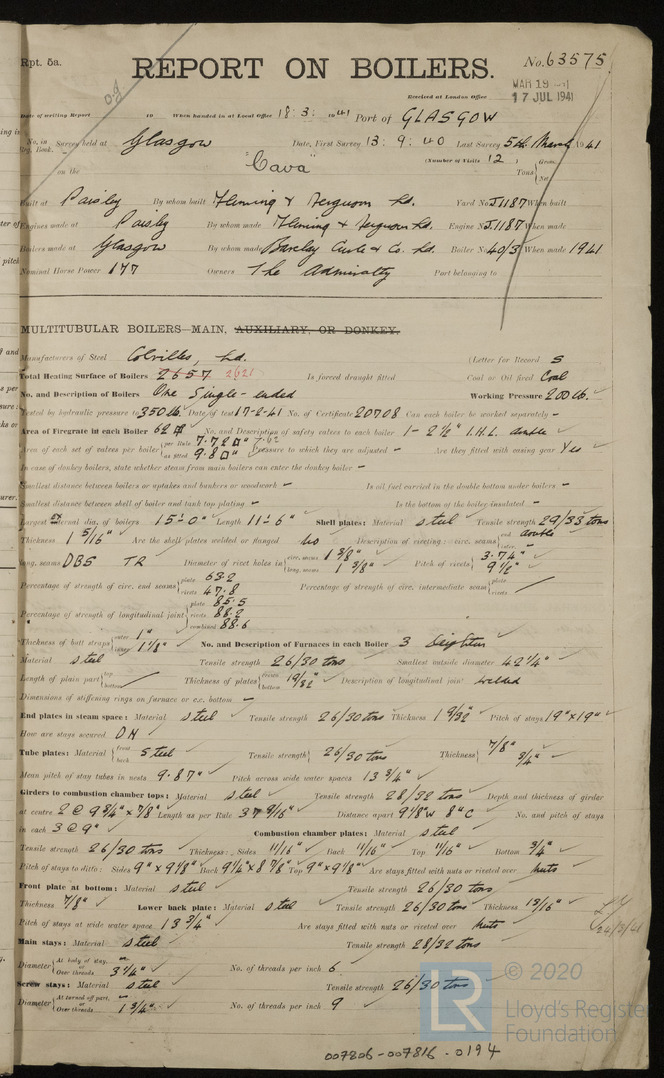 Rpt. 5a.
REPORT ON BOILERS.
No. 63575
Received at London Office
MAR 19
17 JUL 1941
Date of writing Report 19 When handed in at Local Office 18.3. 1941 Port of GLASGOW
No. in Reg. Book. Survey held at Glasgow Date, First Survey 13.9.40 Last Survey 5th March 1941
on the "Cava" (Number of Visits 12) Tons Gross Net
Built at Paisley By whom built Fleming & Ferguson Ld. Yard No. J1187 When built
Engines made at Paisley By whom made Fleming & Ferguson Ld. Engine No. J1187 When made
Boilers made at Glasgow By whom made Barclay Curle & Co. Ld. Boiler No. 40/3 When made 1941
Nominal Horse Power 147 Owners The Admiralty Port belonging to
MULTITUBULAR BOILERS—MAIN, AUXILIARY, OR DONKEY.
Manufacturers of Steel Colvilles, Ld. (Letter for Record S
Total Heating Surface of Boilers 2657 2621 Is forced draught fitted Coal or Oil fired Coal
No. and Description of Boilers One Single-ended Working Pressure 200 lb.
Tested by hydraulic pressure to 350 lb. Date of test 17-2-41 No. of Certificate 20708 Can each boiler be worked separately -
Area of Firegrate in each Boiler 62 No. and Description of safety valves to each boiler 1 - 2½" I.H.L. double
Area of each set of valves per boiler per Rule 7.72 as fitted 9.8 Pressure to which they are adjusted - Are they fitted with easing gear Yes
In case of donkey boilers, state whether steam from main boilers can enter the donkey boiler -
Smallest distance between boilers or uptakes and bunkers or woodwork - Is oil fuel carried in the double bottom under boilers -
Smallest distance between shell of boiler and tank top plating - Is the bottom of the boiler insulated -
Largest external dia. of boilers 15'-0" Length 11'-6" Shell plates: Material steel Tensile strength 29/33 tons
Thickness 1 5/16" Are the shell plates welded or flanged No Description of riveting: circ. seams end double inter. -
long. seams DBS TR Diameter of rivet holes in circ. seams 1 3/8" long. seams 1 3/8" Pitch of rivets 3.74" 9½"
Percentage of strength of circ. end seams plate 63.2 rivets 47.8 Percentage of strength of circ. intermediate seam plate rivets
Percentage of strength of longitudinal joint plate 85.5 rivets 88.2 combined 88.6
Thickness of butt straps outer 1" inner 1 1/8" No. and Description of Furnaces in each Boiler 3 Deighton
Material steel Tensile strength 26/30 tons Smallest outside diameter 42¼"
Length of plain part top bottom Thickness of plates crown bottom 19/32" Description of longitudinal joint welded
Dimensions of stiffening rings on furnace or c.c. bottom -
End plates in steam space: Material steel Tensile strength 26/30 tons Thickness 1 9/32" Pitch of stays 19" x 19"
How are stays secured DN
Tube plates: Material front back steel Tensile strength 26/30 tons Thickness 7/8" 3/4"
Mean pitch of stay tubes in nests 9.87" Pitch across wide water spaces 13¾"
Girders to combustion chamber tops: Material steel Tensile strength 28/32 tons Depth and thickness of girder
at centre 2 @ 9¾" x 7/8" Length as per Rule 37 9/16" Distance apart 9 1/8" W 8" C No. and pitch of stays
in each 3 @ 9" Combustion chamber plates: Material steel
Tensile strength 26/30 tons Thickness: Sides 11/16" Back 11/16" Top 11/16" Bottom 3/4"
Pitch of stays to ditto: Sides 9" x 9 1/8" Back 9¼" x 8 7/8" Top 9" x 9 1/8" Are stays fitted with nuts or riveted over Nuts
Front plate at bottom: Material steel Tensile strength 26/30 tons
Thickness 7/8" Lower back plate: Material steel Tensile strength 26/30 tons Thickness 13/16"
Pitch of stays at wide water space 13¾" Are stays fitted with nuts or riveted over Nuts
24/3/41
Main stays: Material steel Tensile strength 28/32 tons
Diameter At body of stay, or Over threads 3¼" No. of threads per inch 6
Screw stays: Material steel Tensile strength 26/30 tons
Diameter At turned off part, or Over threads 1¾" No. of threads per inch 9
LR © 2020
Lloyd's Register
Foundation
007806-007816-0194